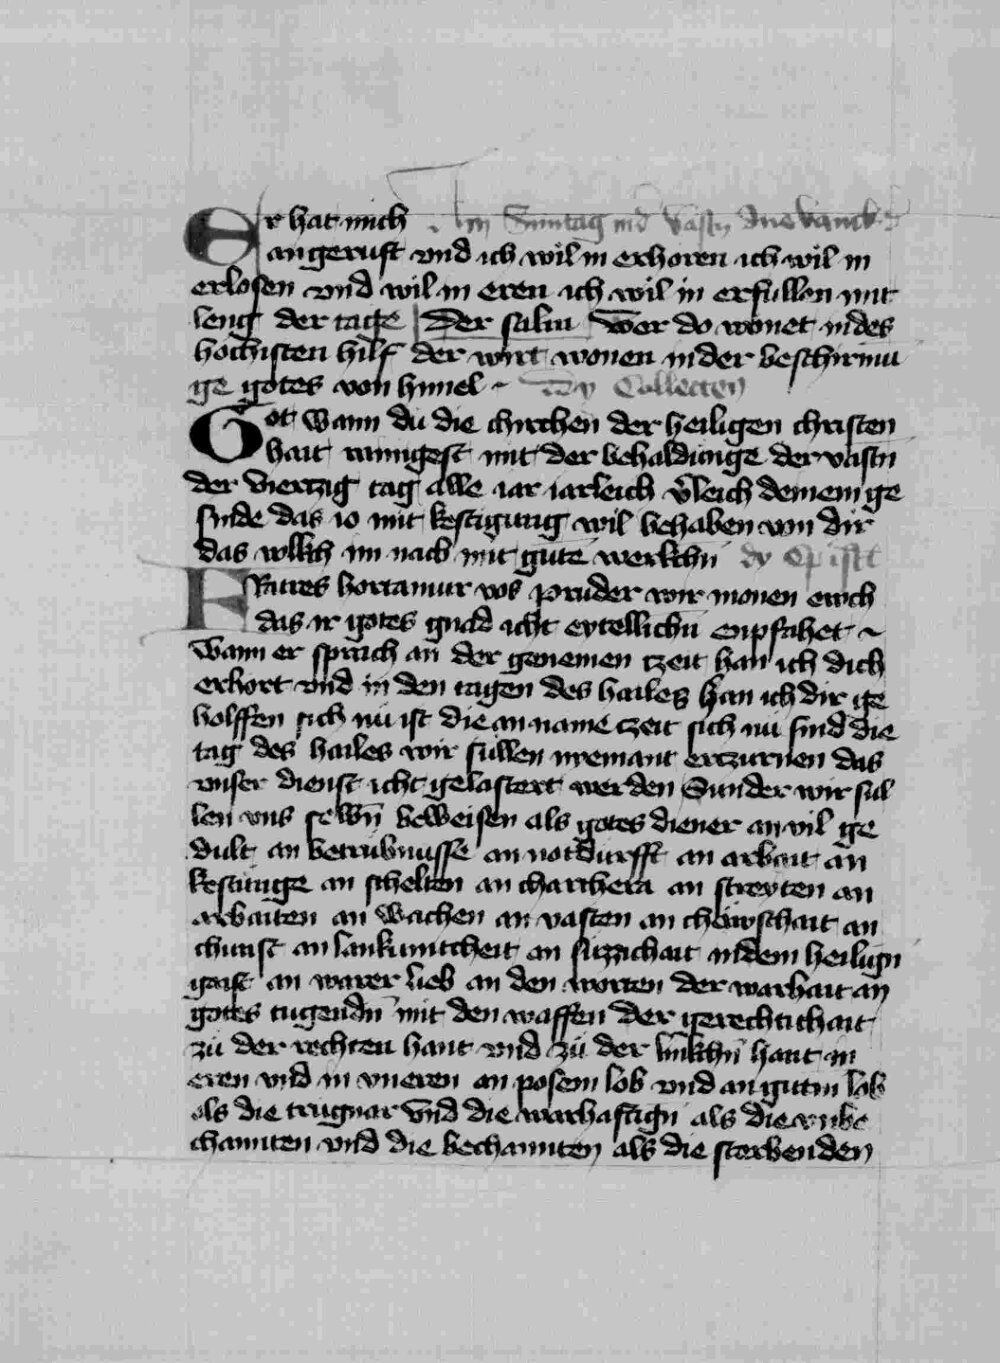 Er hat mich Am Suntag in d' Vastn
angeruft vnd ich wil in erhoren ich wil in
erlosen vnd wil in eren ich wil in erfullen mit
leng der tage Der salm Wer do wonet in des
hochisten hilf der wirt wonen in der beschirmu
ge gotes von himel dy Collecten
Got wann du die chirchen der heiligen christen
hait rainigest mit der behaldunge der vastn
der viertzig tag alle iar iarleich v̄leich deinem ge
sinde das io mit kestigung wil behaben von dir
das volkch im nach mit gute werkchn dy Epistl
Fratres hortamur vos pruder wir monen ewch
das ir gotes gnad icht eytellichn enpfahet
Wann er sprach an der genemen tzeit han ich dich
erhort vnd in den tagen des hailes han ich dir ge
holffen sich nu ist die an name tzeit sich nu sind die
tag des hailes wir sullen nyemant ertzurnen das
vnser dienst icht gelastert werden Sunder wir sul
len vns selbn beweisen als gotes diener an vil ge
dult an betrubnusse an notdurfft an arbait an
kestiunge an schelten an charchern an streyten an
arbaiten an wachen an vasten an chewschait an
chunst an lankmutcheit an suzzichait in dem heilign
geist an warer lieb an den worten der warhait an
gotes tugendn mit den waffen der gerechtichait
zu der rechten hant vnd zu der linkchn hant in
eren vnd in vneren an posem lob vnd an gutm lob
als die trugnar vnd die warhaftign als die vnbe
channten vnd die bechannten als die sterbenden